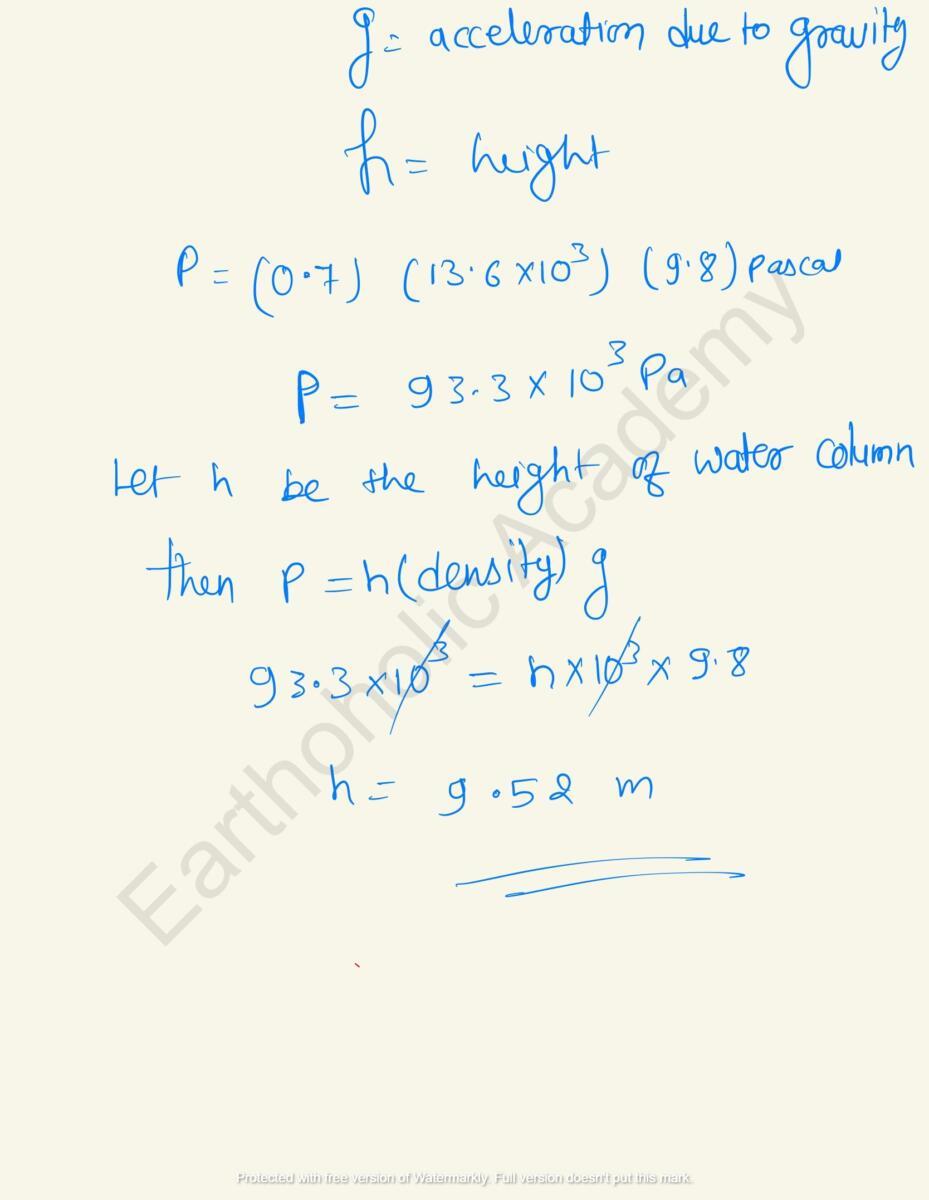 g = acceleration due to gravity
h = height
P = (0.7) (13.6 × 10³) (9.8) pascal
P = 93.3 × 10³ Pa
Let h be the height of water column
then P = h(density) g
93.3 × 10³ = h × 10³ × 9.8
h = 9.52 m
Earthoholic Academy
Protected with free version of Watermarkly. Full version doesn't put this mark.